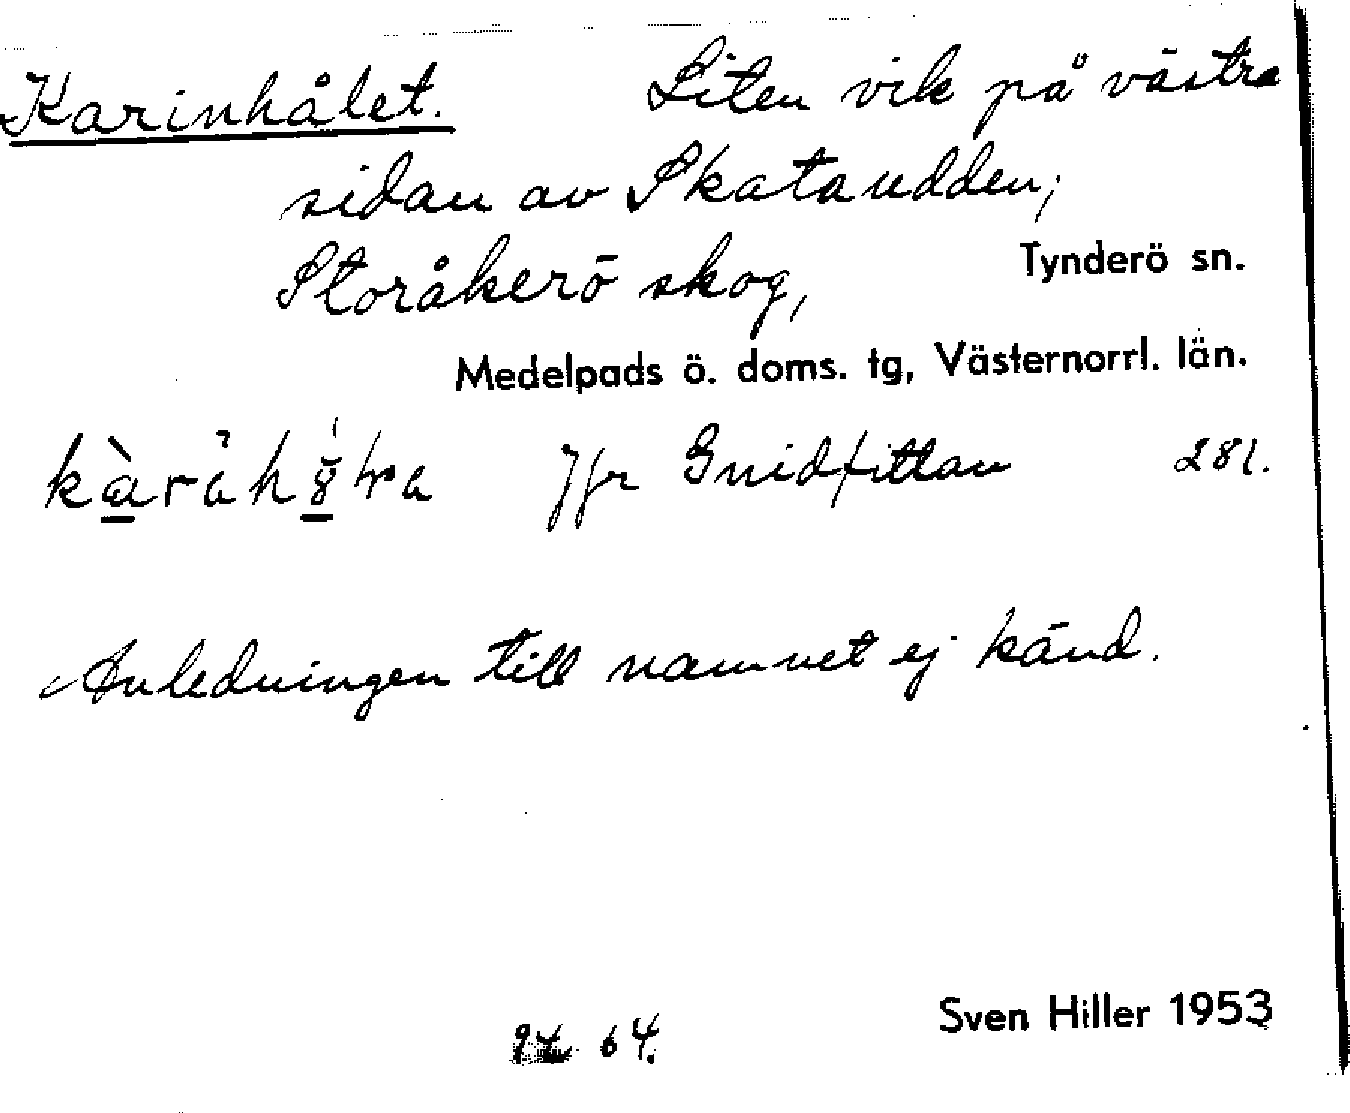 Karinhålet. Liten vik på västra
sidan av Skataudden,
Storåkerö skog, Tynderö sn.
Medelpads ö. doms. tg, Västernorrl. län.
Jfr Gnidfittan 281.
Anledningen till namnet ej känd.
64. Sven Hiller 1953